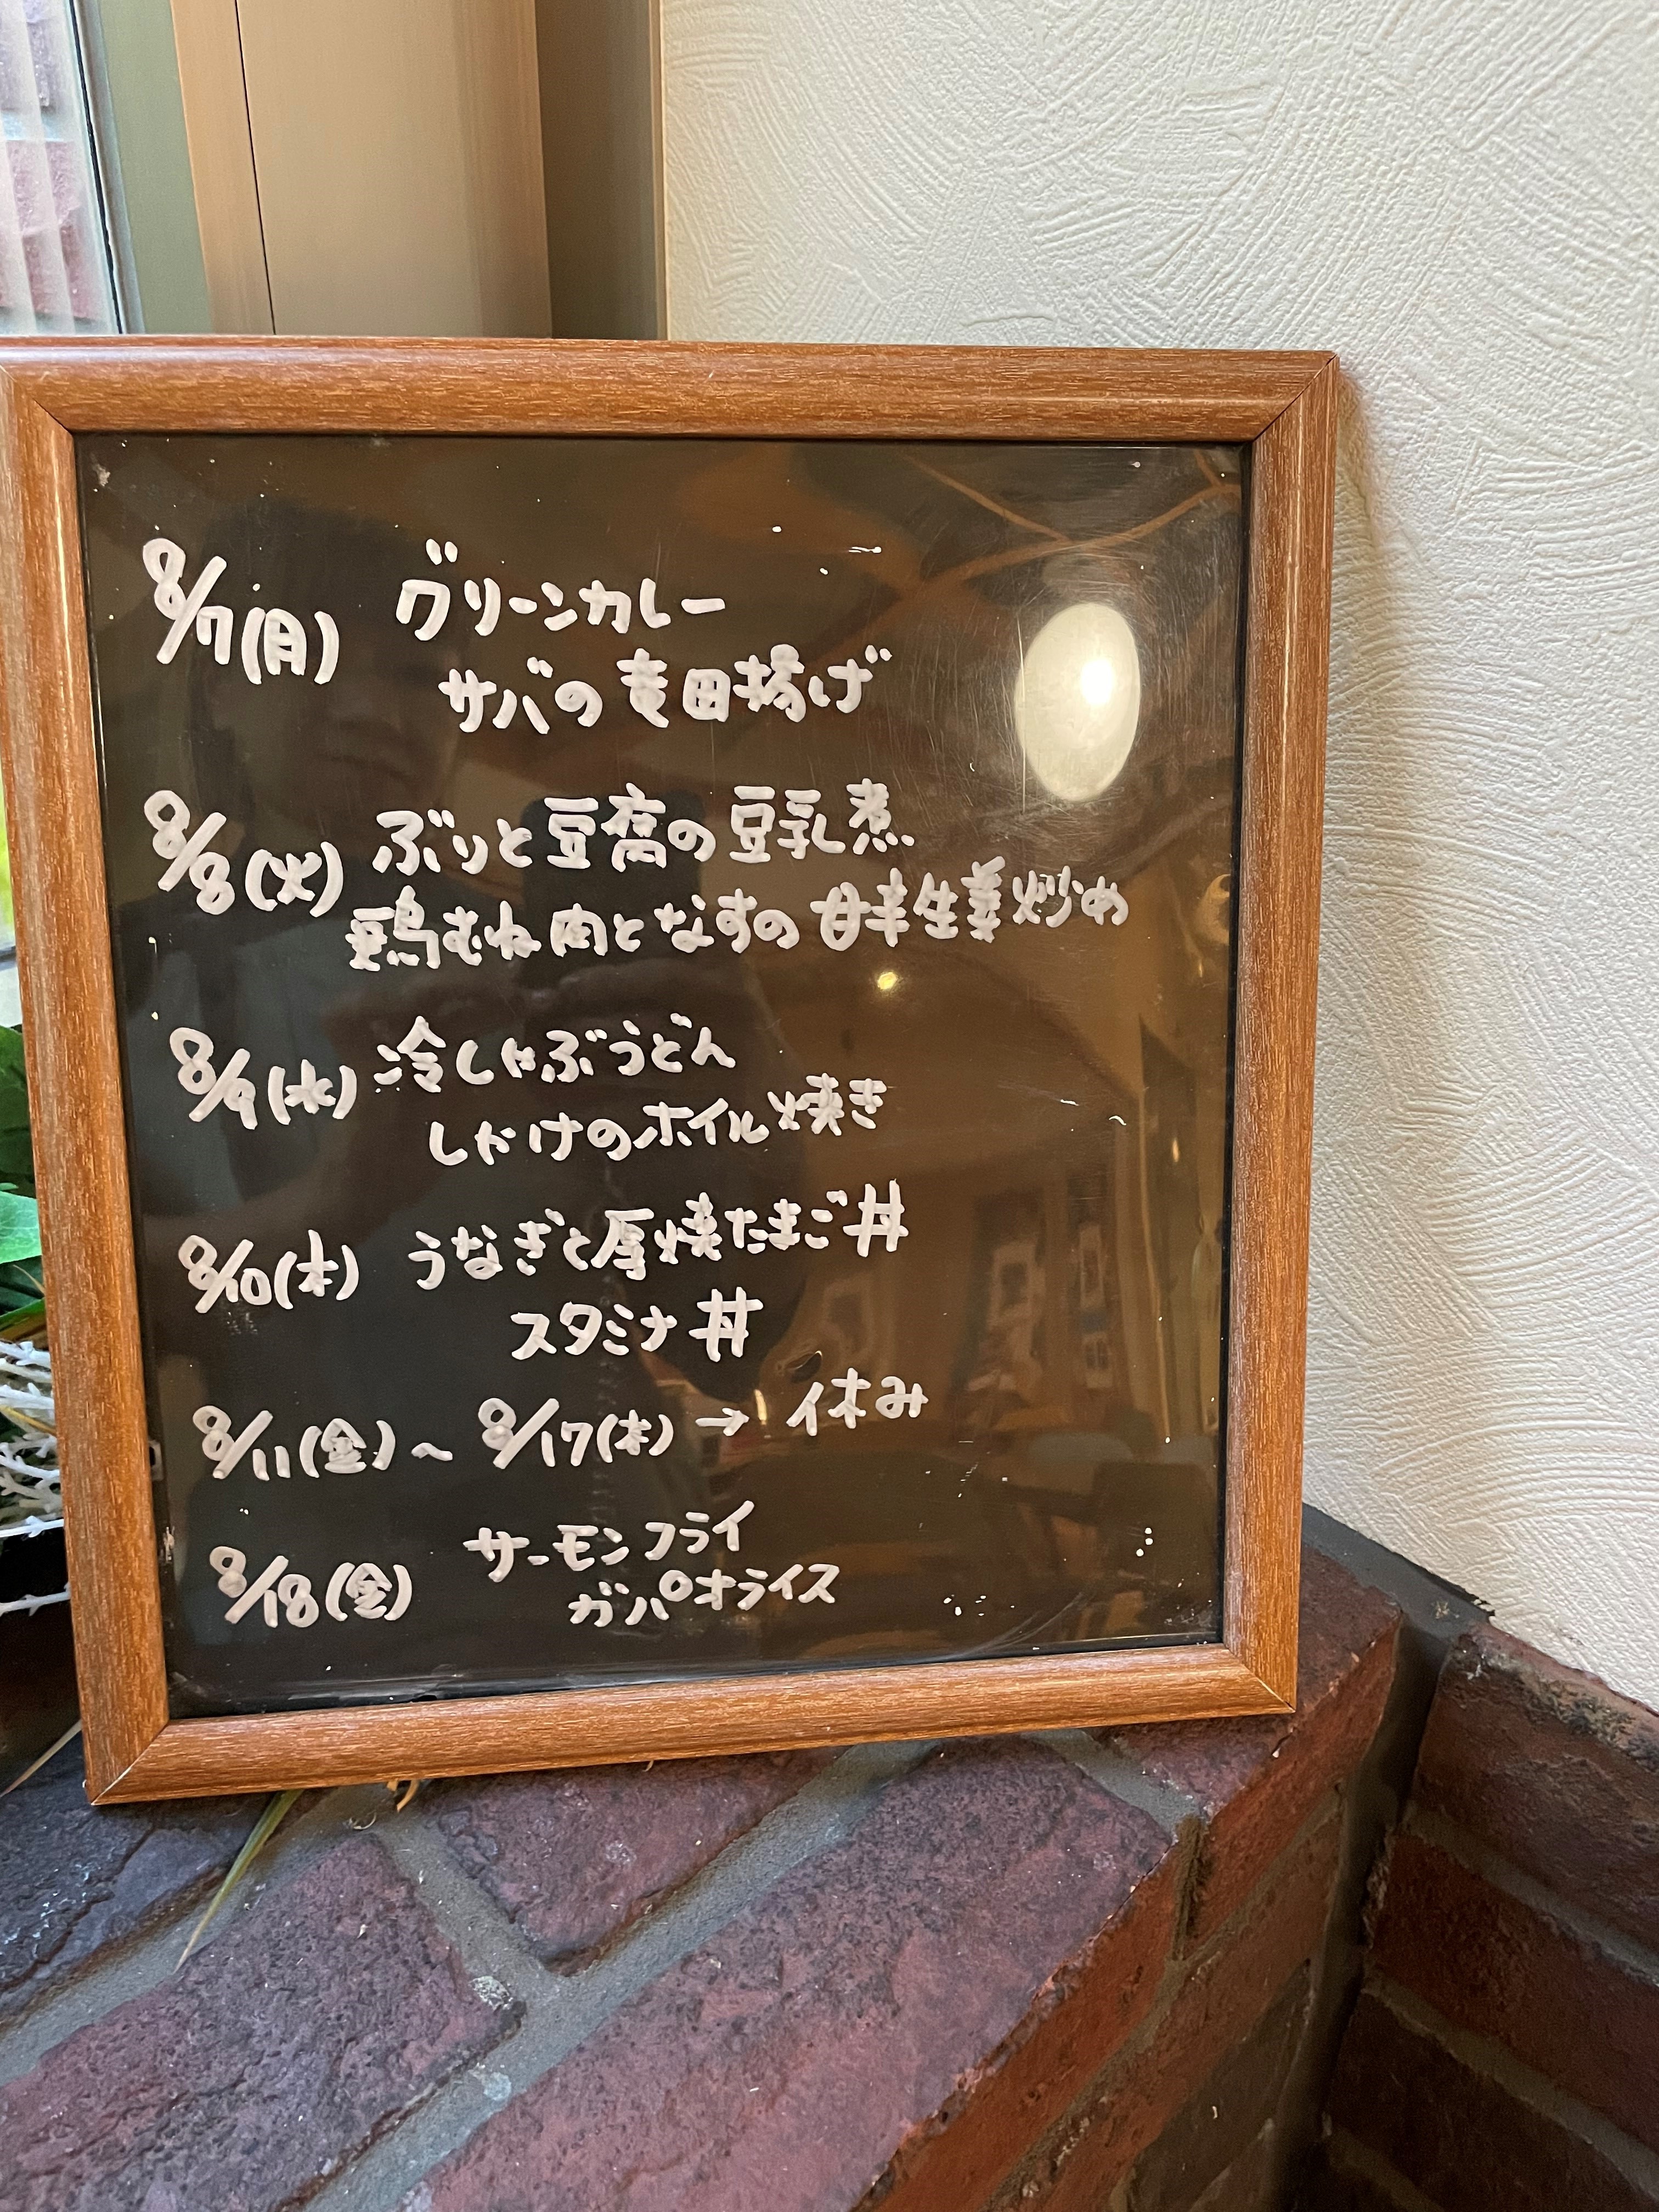 8/7(月) グリーンカレー
サバの竜田揚げ
8/8(火) ぶりと豆腐の豆乳煮
鶏むね肉となすの甘辛生姜炒め
8/9(水) 冷しゃぶうどん
しゃけのホイル焼き
8/10(木) うなぎと厚焼たまご丼
スタミナ丼
8/11(金)~8/17(木)→休み
8/18(金) サーモンフライ
ガパオライス